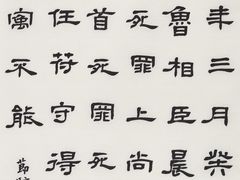 年三月癸
魯相臣晨
死罪上尚
首死罪死
任苻守得
寓不能
節